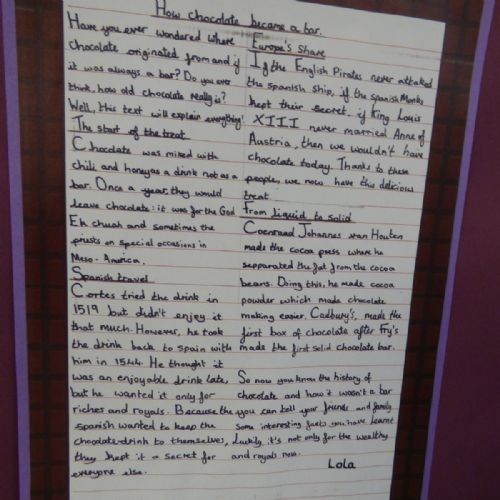 How chocolate became a bar.
Have you ever wondered where
chocolate originated from and if
it was always a bar? Do you ever
think, how old chocolate really is?
Well, this text will explain everything!
The start of the treat
Chocolate was mixed with
chili and honey as a drink not as a
bar. Once a year, they would
leave chocolate: it was for the God
Ek chuah and sometimes the
priests on special occasions in
Meso-America.
Spanish travel
Cortes tried the drink in
1519 but didn't enjoy it
that much. However, he took
the drink back to spain with
him in 1544. He thought it
was an enjoyable drink late,
but he wanted it only for
riches and royals. Because the
spanish wanted to keep the
chocolate-drink to themselves,
they kept it a secret for
everyone else.
Europe's Share
If the English Pirates never attacked
the spanish ship, if the spanish Monks
kept their secret, if King Louis
XIII never married Anne of
Austria, then we wouldn't have
chocolate today. Thanks to these
people, we now have this delicious
treat.
From liquid to solid
Coenraad Johannes van Houten
made the cocoa press where he
sepparated the fat from the cocoa
beans. Doing this, he made cocoa
powder which made chocolate
making easier. Cadbury's, made the
first box of chocolate after Fry's
made the first solid chocolate bar.
So now you know the history of
chocolate and how it wasn't a bar
you can tell your friends and family
some interesting facts you have learnt
Luckily, it's not only for the wealthy
and royals now.
Lola